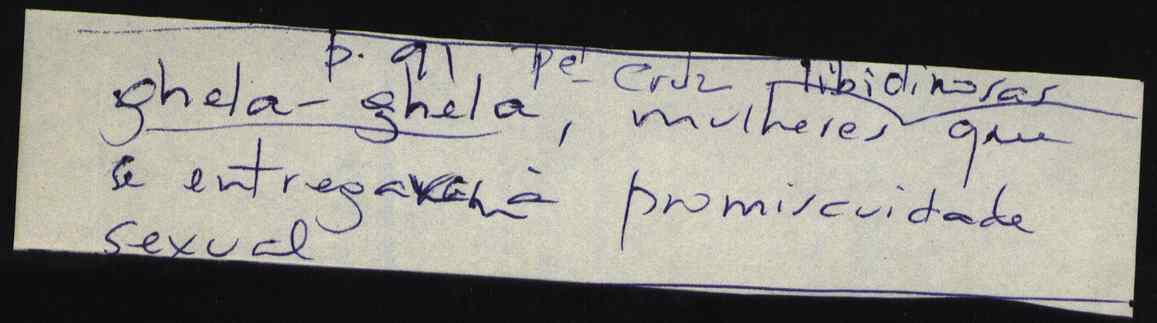 p. 91 pe Cruz libidinosas
ghela-ghela, mulheres que
se entregavam à promiscuidade
sexual